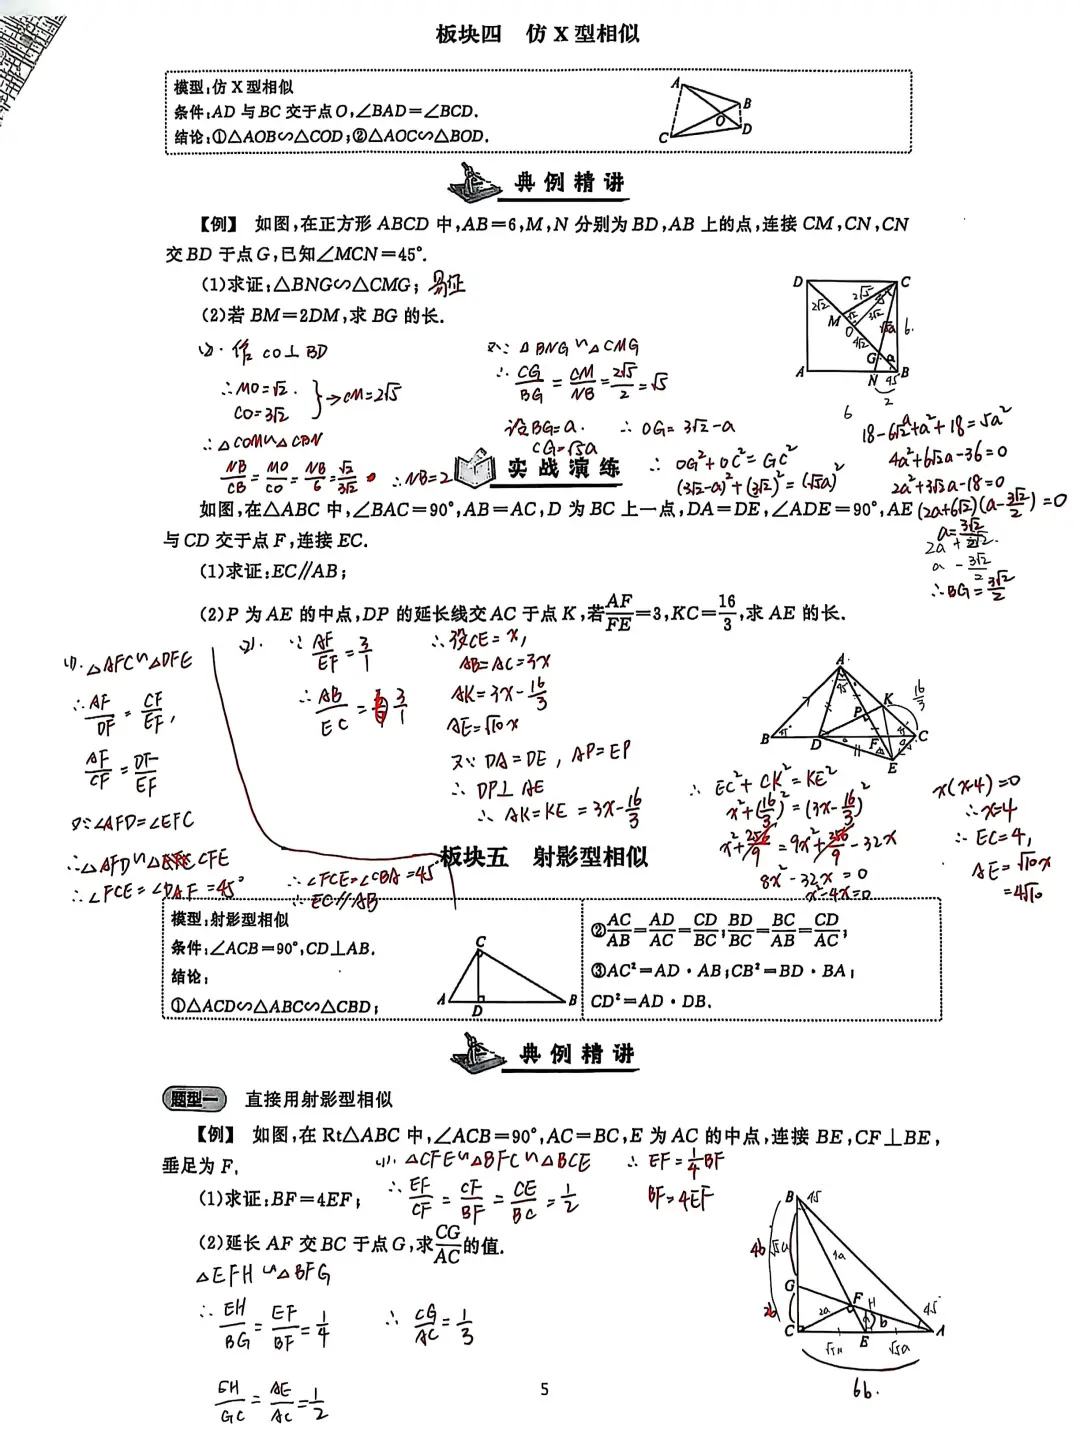 板块四 仿X型相似
模型:仿X型相似
条件:AD与BC交于点O,∠BAD=∠BCD.
结论:①△AOB∽△COD;②△AOC∽△BOD.
A
B
O
C
D
典例精讲
【例】 如图,在正方形ABCD中,AB=6,M,N分别为BD,AB上的点,连接CM,CN,CN
交BD于点G,已知∠MCN=45°.
(1)求证:△BNG∽△CMG; 易证
(2)若BM=2DM,求BG的长.
(2)·作CO⊥BD
∴MO=√2.
CO=3√2
}→CM=2√5
∴△COM∽△CBN
NB/CB=MO/CO=NB/6=√2/3√2
∴NB=2
又∵△BNG∽△CMG
∴CG/BG=CM/NB=2√5/2=√5
设BG=a. ∴OG=3√2-a
CG=√5a
∴OG²+OC²=GC²
(3√2-a)²+(3√2)²=(√5a)²
18-6√2a+a²+18=5a²
4a²+6√2a-36=0
2a²+3√2a-18=0
(2a+6√2)(a-3√2/2)=0
a=3√2/2
∴BG=3√2/2
D C
2√2 2√5
M 3√2
O √5a 6
4√2
G a
A N 45 B
2
实战演练
如图,在△ABC中,∠BAC=90°,AB=AC,D为BC上一点,DA=DE,∠ADE=90°,AE
与CD交于点F,连接EC.
(1)求证:EC∥AB;
(2)P为AE的中点,DP的延长线交AC于点K,若AF/FE=3,KC=16/3,求AE的长.
(1)·△AFC∽△DFE
∴AF/DF=CF/EF,
AF/CF=DF/EF
又∵∠AFD=∠EFC
∴△AFD∽△CFE
∴∠FCE=∠DAF=45°
∴∠FCE=∠CBA=45°
∴EC∥AB
(2)·∵AF/EF=3/1
∴AB/EC=3/1
∴设CE=x,
AB=AC=3x
AK=3x-16/3
AE=√10x
又∵DA=DE,AP=EP
∴DP⊥AE
∴AK=KE=3x-16/3
∴EC²+CK²=KE²
x²+(16/3)²=(3x-16/3)²
x²+256/9=9x²+256/9-32x
8x²-32x=0
x²-4x=0
x(x-4)=0
∴x=4
∴EC=4,
AE=√10x
=4√10
A
45
K 16/3
P
B D F C
E
板块五 射影型相似
模型:射影型相似
条件:∠ACB=90°,CD⊥AB.
结论:
①△ACD∽△ABC∽△CBD;
C
A D B
②AC/AB=AD/AC=CD/BC;BD/BC=BC/AB=CD/AC;
③AC²=AD·AB;CB²=BD·BA;
CD²=AD·DB.
典例精讲
题型一 直接用射影型相似
【例】 如图,在Rt△ABC中,∠ACB=90°,AC=BC,E为AC的中点,连接BE,CF⊥BE,
垂足为F.
(1)求证:BF=4EF;
(2)延长AF交BC于点G,求CG/AC的值.
(1)·△CFE∽△BFC∽△BCE
∴EF/CF=CF/BF=CE/BC=1/2
∴EF=1/4BF
BF=4EF
△EFH∽△BFG
∴EH/BG=EF/BF=1/4
EH/GC=AE/AC=1/2
∴CG/AC=1/3
B 45
4b
G
2b 2a F H
45° A
C E b
√5a
6b.
5